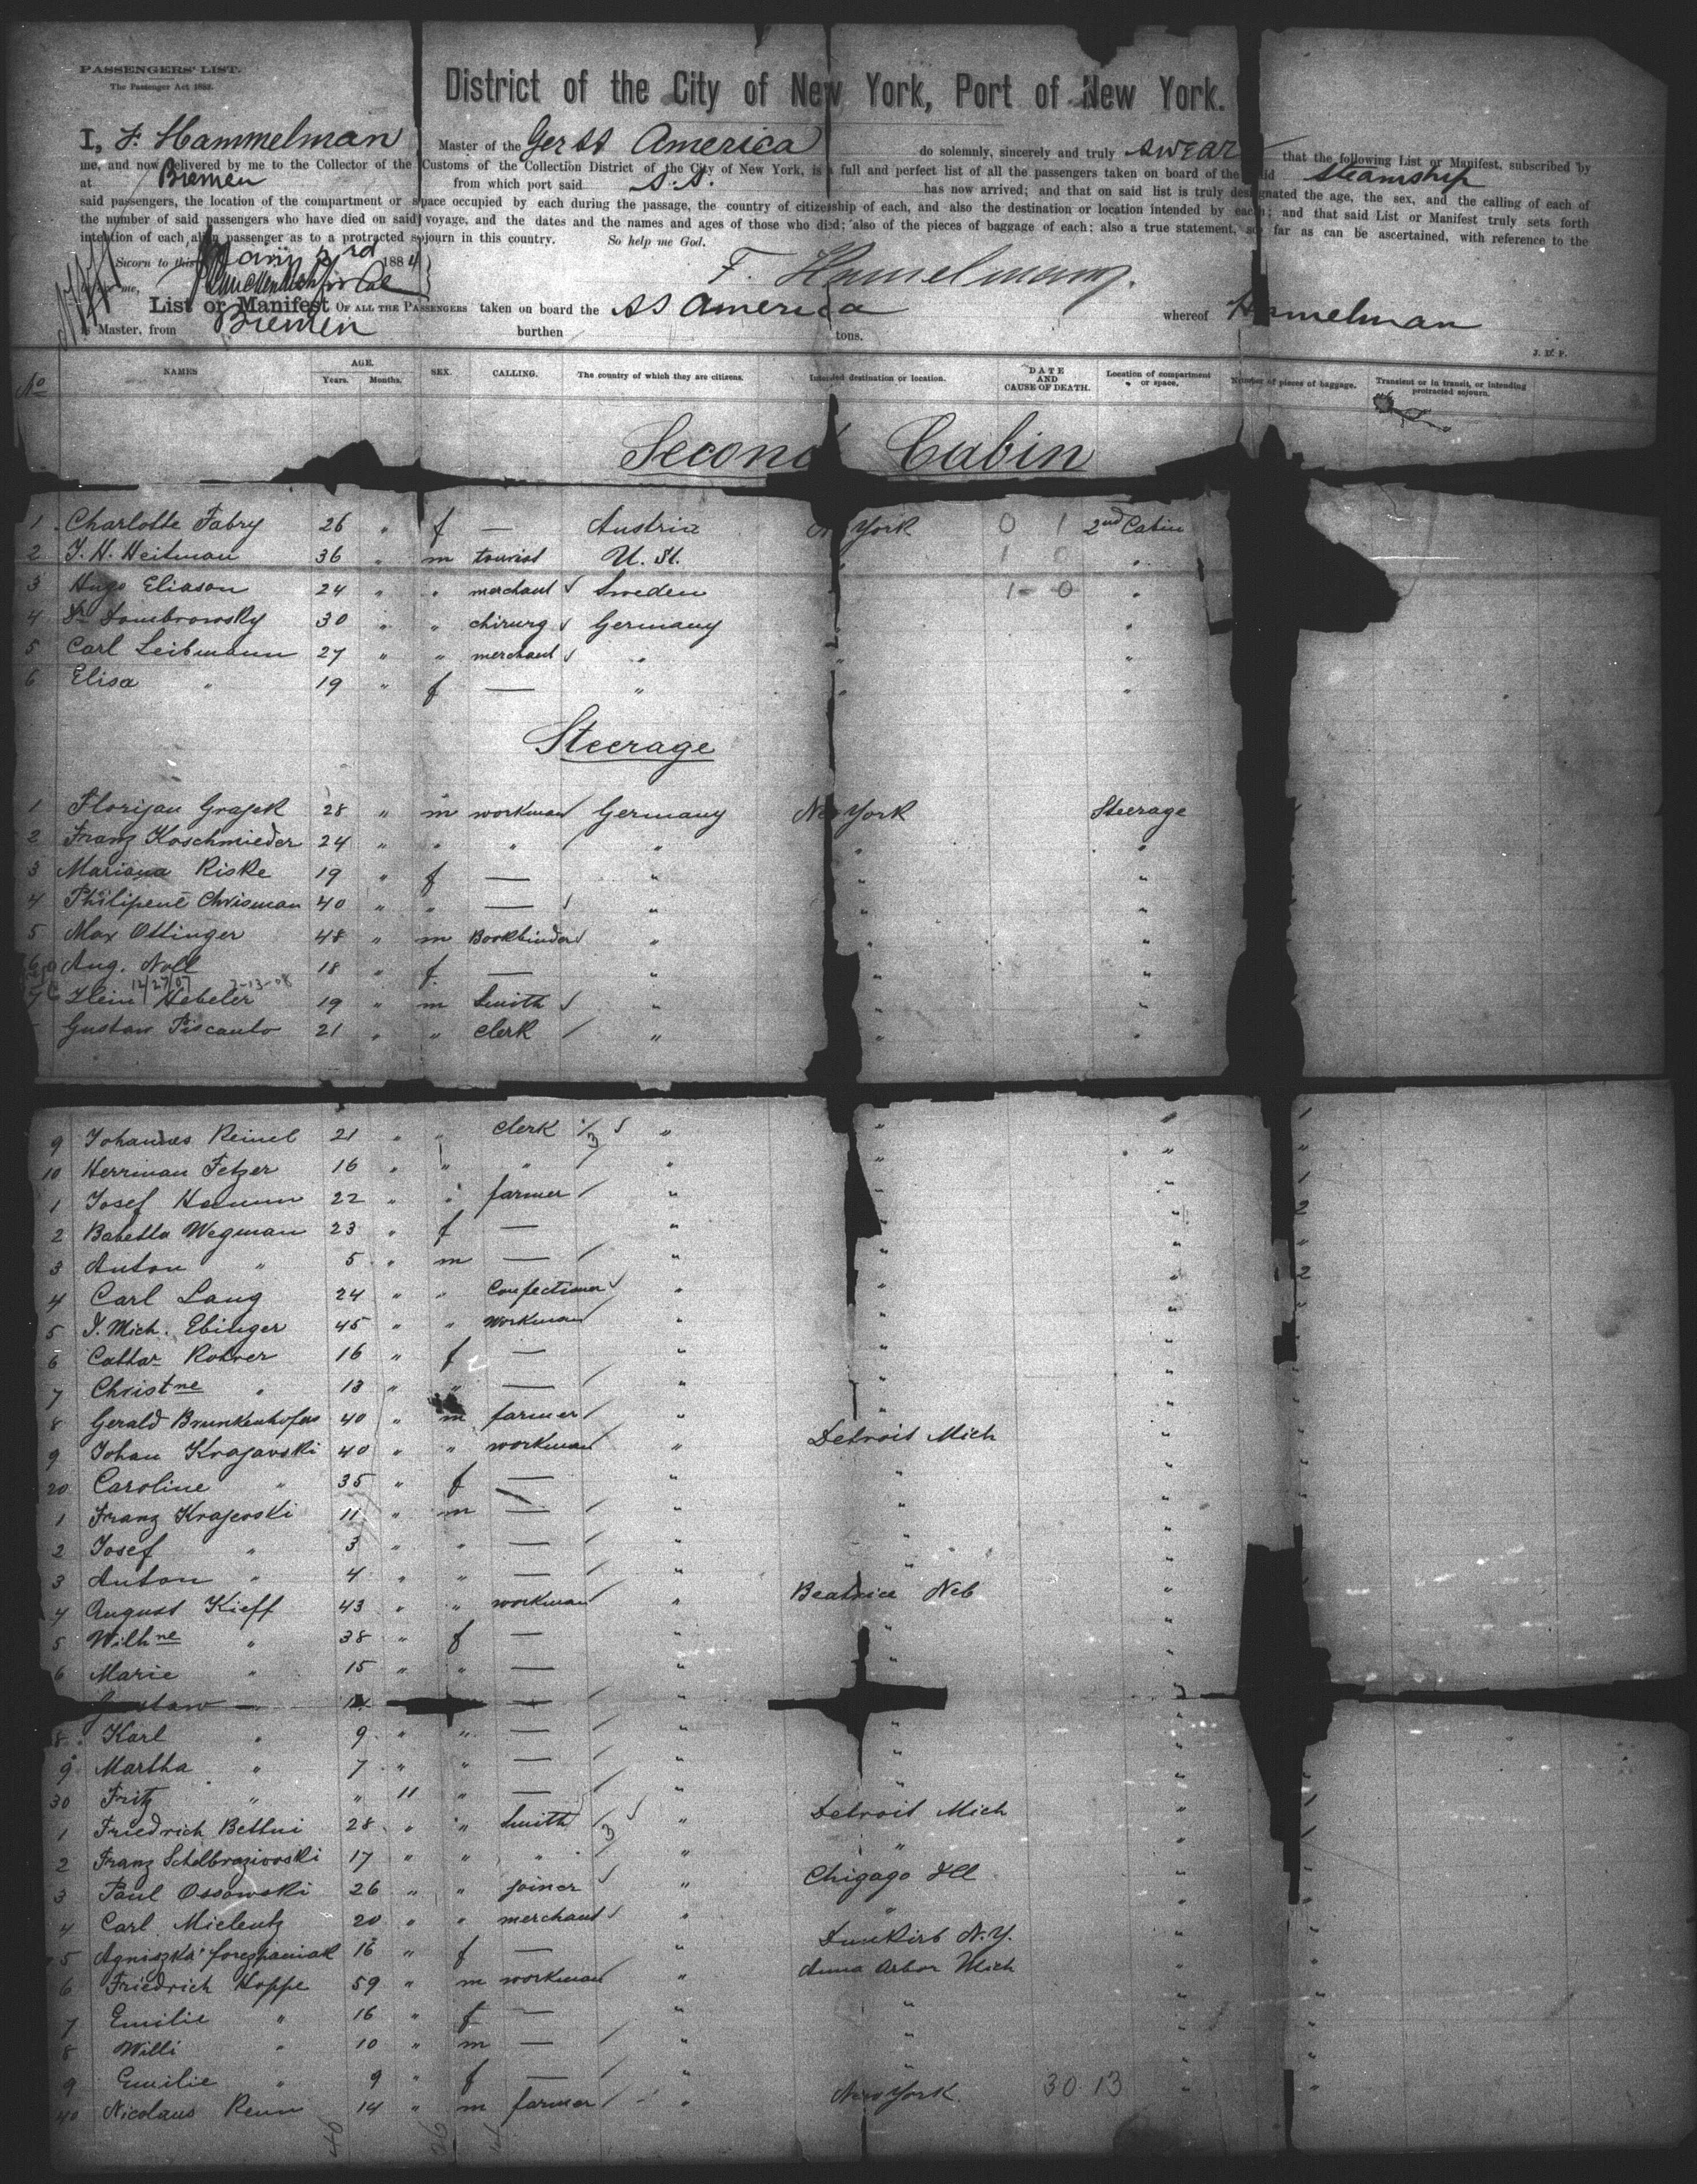 PASSENGERS' LIST.
The Passenger Act 1882.
District of the City of New York, Port of New York.
I, F. Hammelman Master of the Ger SS America do solemnly, sincerely and truly swear that the following List or Manifest, subscribed by
me, and now delivered by me to the Collector of the Customs of the Collection District of the City of New York, is a full and perfect list of all the passengers taken on board of the said Steamship
at Bremen from which port said S.S. has now arrived; and that on said list is truly designated the age, the sex, and the calling of each of
said passengers, the location of the compartment or space occupied by each during the passage, the country of citizenship of each, and also the destination or location intended by each; and that said List or Manifest truly sets forth
the number of said passengers who have died on said voyage, and the dates and the names and ages of those who died; also of the pieces of baggage of each; also a true statement, so far as can be ascertained, with reference to the
intention of each alien passenger as to a protracted sojourn in this country. So help me God.
Sworn to this 3rd 1884
me, F. Hamelmann.
List or Manifest OF ALL THE PASSENGERS taken on board the SS America whereof Hamelman
is Master, from Bremen burthen tons.
J. M. P.
No NAMES AGE. Years. Months. SEX. CALLING. The country of which they are citizens. Intended destination or location. DATE AND CAUSE OF DEATH. Location of compartment or space. Number of pieces of baggage. Transient or in transit, or intending protracted sojourn.
Second Cabin
1 Charlotte Fabry 26 " f — Austria N York 0 1 2nd Cabin
2 J. H. Heitman 36 " m tourist U. St. " 1 0 "
3 Hugo Eliason 24 " " merchant Sweden 1 - 0 "
4 Dr Dombrowsky 30 " " chirurg Germany " "
5 Carl Leibmann 27 " " merchant " " "
6 Elisa " 19 " f — " " "
Steerage
1 Florijan Grajek 28 " m workman Germany New York Steerage
2 Franz Koschmieder 24 " " " " " "
3 Mariana Riske 19 " f — " " "
4 Philipene Chrisman 40 " " — " " "
5 Max Ottinger 48 " m Bookbinder " " "
6 Aug. Noll 18 " f — " " "
12/27/07 2-13-08
7 Hein Hebeler 19 " m Smith " " "
Gustav Piscanto 21 " " clerk " " "
9 Johannes Reinel 21 " " clerk " " " 1
10 Herrman Fetzer 16 " " " " " " "
1 Josef Hamm 22 " " farmer " " " 1
2 Babetta Wegman 23 " f — " " " 2
3 Anton " 5 " m — " " " "
4 Carl Lang 24 " " Confectioner " " " 2
5 J. Mich. Ebinger 45 " " workman " " " "
6 Cathar Rohrer 16 " f — " " " "
7 Christne " 13 " " — " " " "
8 Gerald Brunkenhofers 40 " m farmer " " " "
9 Johan Krajavski 40 " " workman " Detroit Mich " "
20 Caroline " 35 " f — " " " "
1 Franz Krajevski 11 " m — " " " "
2 Josef " 3 " " — " " " "
3 Anton " 4 " " — " " " "
4 August Kieff 43 " " workman " Beatrice Neb " "
5 Wilhne " 38 " f — " " "
6 Marie " 15 " " — " " "
Gustaw — "
8 Karl " 9 " " — " " "
9 Martha " 7 " " — " " " "
30 Fritz " " 11 " — " " " "
1 Friedrich Bethui 28 " " Smith " Detroit Mich " 1
2 Franz Schelbrazivoski 17 " " " " " " 1
3 Paul Ossowski 26 " " joiner " Chigago Ill " "
4 Carl Mielentz 20 " " merchant " " " "
5 Agniszka 16 " f — " Dunkirs N.Y. " "
6 Friedrich Hoppe 59 " m workman " Anna Arbor Mich " "
7 Emilie " 16 " f — " " " "
8 Willi " 10 " m — " " " "
9 Emilie " 9 " f — " " " "
40 Nicolaus Renn 14 " m farmer " New York 30 13 " "